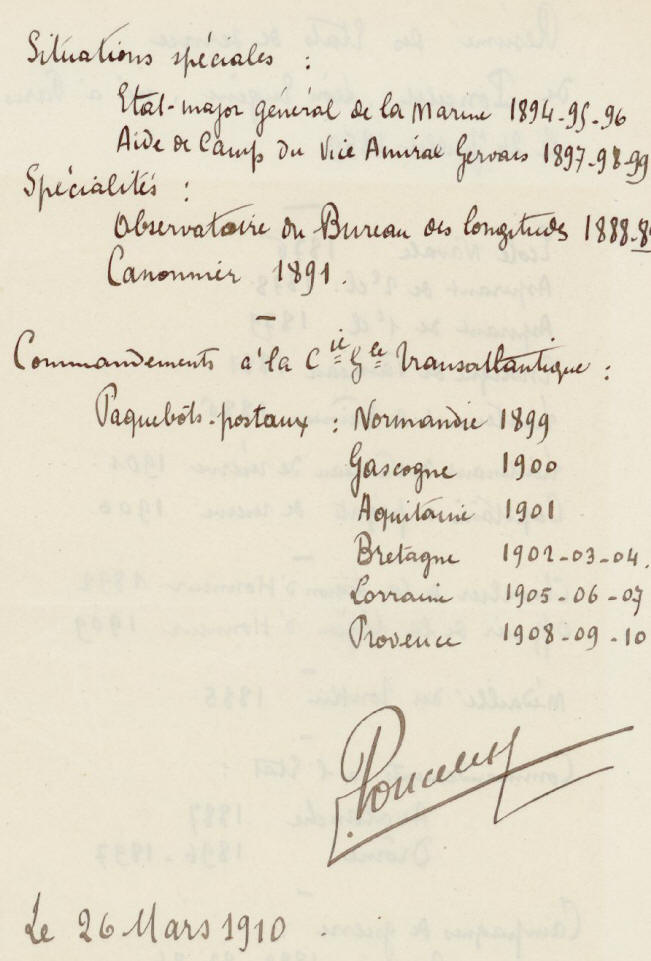 Situations spéciales :
Etat-major général de la Marine 1894-95-96
Aide de Camp du Vice Amiral Gervais 1897-98-99
Spécialités :
Observatoire du Bureau des longitudes 1888-8
Canonnier 1891.
Commandements à la Cie Gle Transatlantique :
Paquebôts-postaux : Normandie 1899
Gascogne 1900
Aquitaine 1901
Bretagne 1902-03-04.
Lorraine 1905-06-07
Provence 1908-09-10
Poncelet
Le 26 Mars 1910.